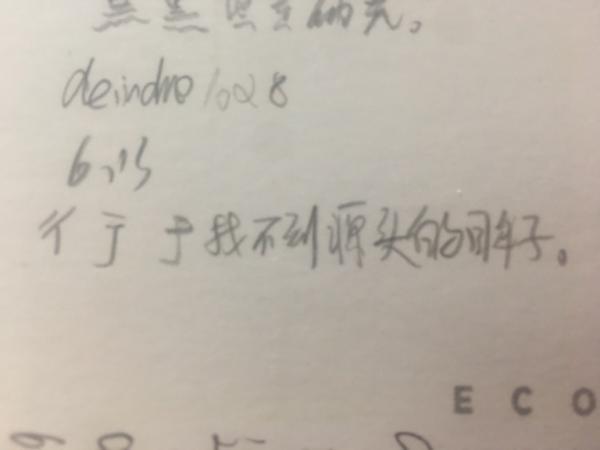 的光。
deindre1028
6.15
彳亍于找不到源头的日子。
E C O